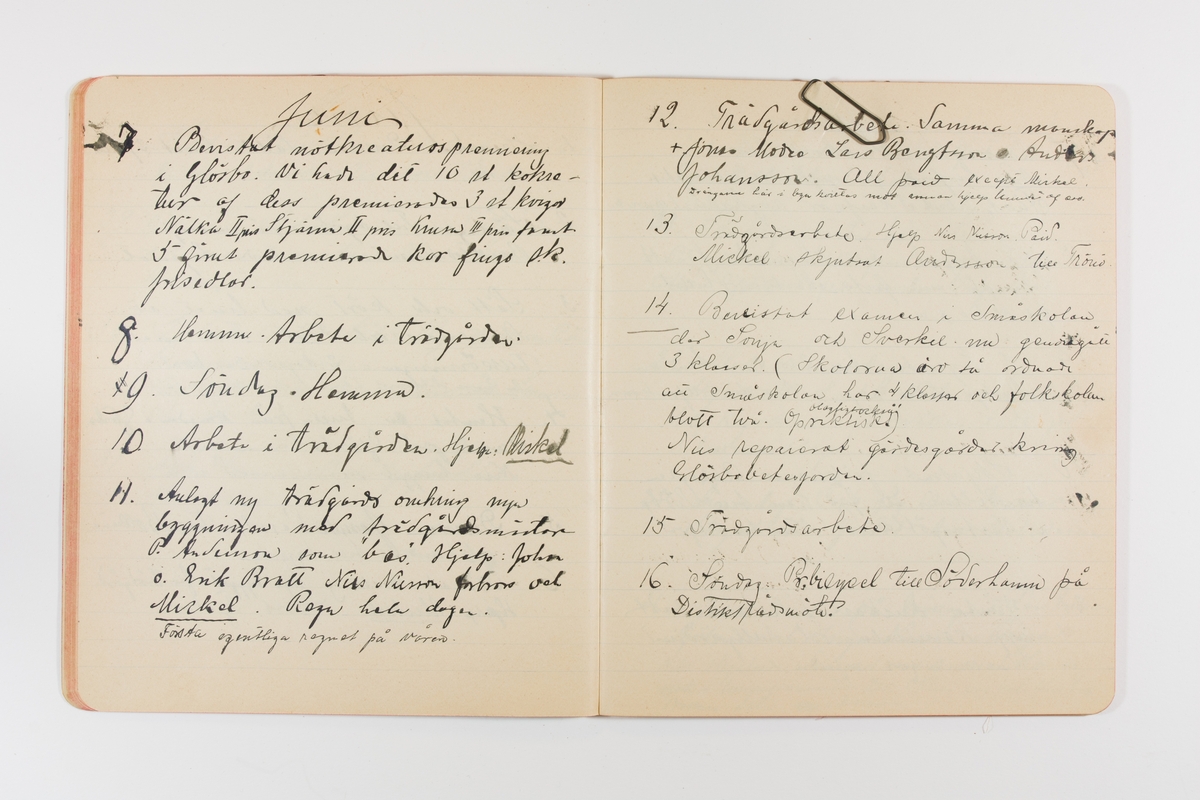 Juni
7. Bevistat nötkreaturspremiering
i Glösbo. Vi hade dit 10 st kokre-
tur af dess premierades 3 st kvigor
Nätkä II pris Stjärna II pris Krusa III pris samt
5 förut premierade kor fingo s.k.
frisedlar.
8. Hemma. Arbete i trädgården.
+9. Söndag. Hemma.
10 Arbete i trädgården. Hjelp: Mickel
11. Anlagt ny trädgård omkring nya
byggningen med trädgårdsmästare
P. Andersson som "bas". Hjelp: John
o. Erik Bratt Nils Nilsson farbror och
Mickel. Regn hela dagen.
Första egentliga regnet på våren.
12. Trädgårdsarbete. Samma manskap
+ Jonas Modea Lars Bengtsson o Anders
Johansson. All paid except Mickel.
13. Trädgårdsarbete. Hjelp Nils Nilsson Paid.
Mickel skjutsat Andersson till Trönö
14. Bevistat examen i Småskolan
der Sonja och Sverkel nu genomgått
3 klasser. (Skolorna äro så ordnade
att Småskolan har 4 klasser och folkskolan
blott två. Opraktiskt)
Nils reparerat gärdesgården kring
Glösbobetesjorden.
15 Trädgårdsarbete.
16. Söndag. Pr. bicycel till Söderhamn på
Distiktsrådsmöte.